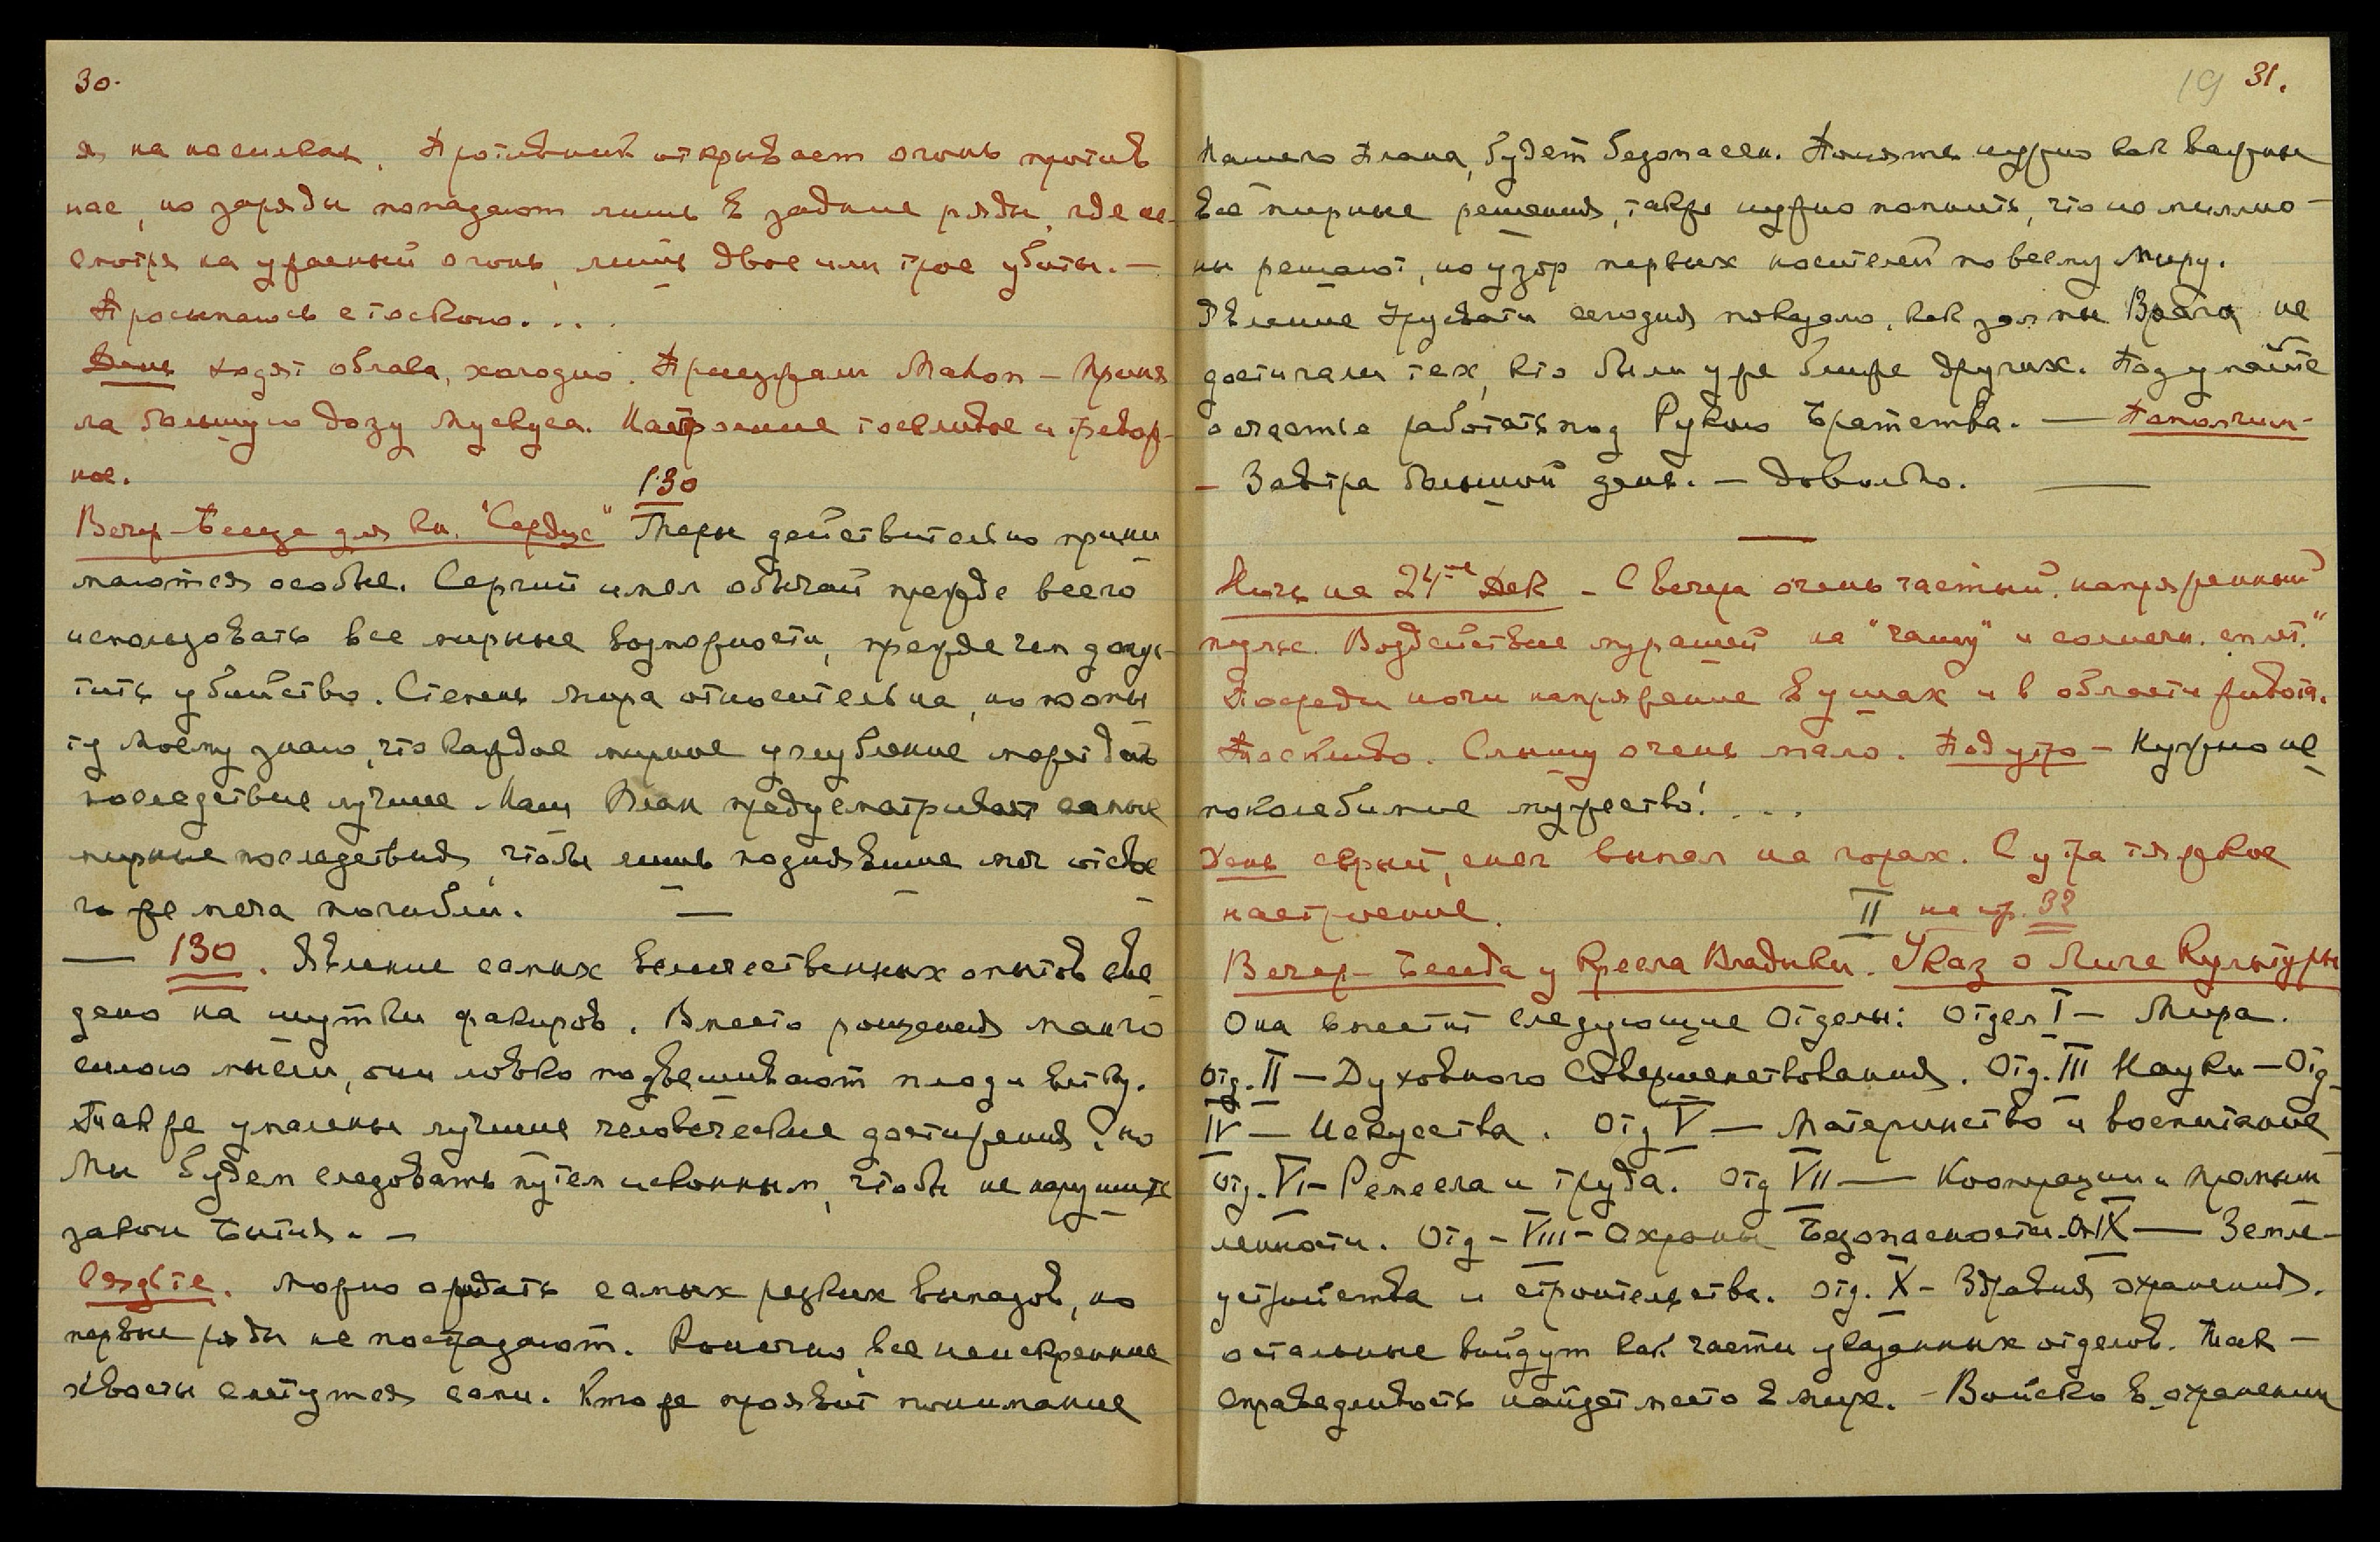 30.
я, на носилках. Противник открывает огонь против
нас, но заряды попадают лишь в задние ряды, где не-
смотря на ужасный огонь, лишь двое или трое убиты. —
Просыпаюсь с тоскою. . .
День ходят облака, холодно. Приезжали Макон — приня
ла большую дозу мускуса. Настроение тоскливое и тревож-
ное.
130
Вечер — Беседа для кн. "Сердце" Меры действительно прини
маются особые. Сергий имел обычай прежде всего
использовать все мирные возможности, прежде чем допус-
тить убийство. Степень мира относительна, но по опы
ту Моему знаю, что каждое мирное углубление может дать
последствие лучшее. Наш План предусматривает самые
мирные последствия, чтобы лишь поднявшие меч от св
го же меча погибли. —
— 130. Явление самых величественных опытов све
дено на шутки факиров. Вместо рощения манго
силою мысли, они ловко подвешивают плод и ветку.
Так же умалены лучшие человеческие достижения, но
Мы будем следовать путем исконным, чтобы не нарушить
закон Бытия. —
Вяжите. Можно ожидать самых резких выпадов, но
первые ряды не пострадают. Конечно, все неискренние
хвосты сметутся сами. Кто же проявит понимание
19 31.
Нашего Плана, будет безопасен. Понять нужно как важны
все мирные решения, также нужно помнить, что не миллио-
ны решают, но узор первых носителей по всему Миру.
Явление Урусвати сегодня показало, как залпы Врага не
достигали тех, кто были уже ближе других. Подумайте
о счастье работать под Рукою Братства. — Помолчим-
— Завтра большой день. — Довольно. —
—
Ночь на 24-ое Дек — С вечера очень частый, напряженный
пульс. Воздействие мурашей на "чашу" и солнечн. сплет."
Посреди ночи напряжение в ушах и в области живота.
Тоскливо. Слышу очень мало. Под утро — Нужно не
поколебимое мужество! . . .
День серый, снег выпал на горах. С утра тяжкое
настроение. II на стр. 32
Вечер — Беседа у кресла Владыки. Указ о Лиге Культуры
Она вместит следующие Отделы: Отдел I — Мира.
Отд. II — Духовного Совершенствования. Отд. III Науки — Отд.
IV — Искусства. Отд V — Материнство и воспитание
Отд. VI — Ремесла и труда. Отд VII — Кооперации и промыш
ленности. Отд — VIII — Охраны Безопасности. От IX — Земле-
устройства и строительства. Отд. X — Здравия охранения.
остальные войдут как части указанных отделов. Так —
справедливость найдет место в мире. — Войско в охранении